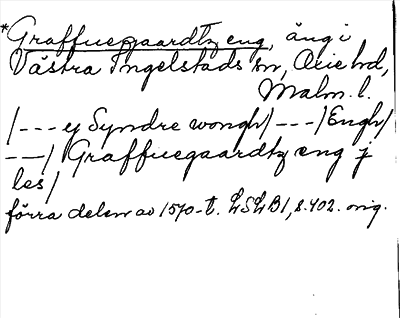 *Graffuegaardtz eng, äng i
Västra Ingelstads sn, Oxie hd,
Malm. l.
/---ej Syndre wongh/---/Engh/
---/ Graffuegaardtz eng j
les/
förra delen av 1570-t. LSLB1, s. 402. orig.